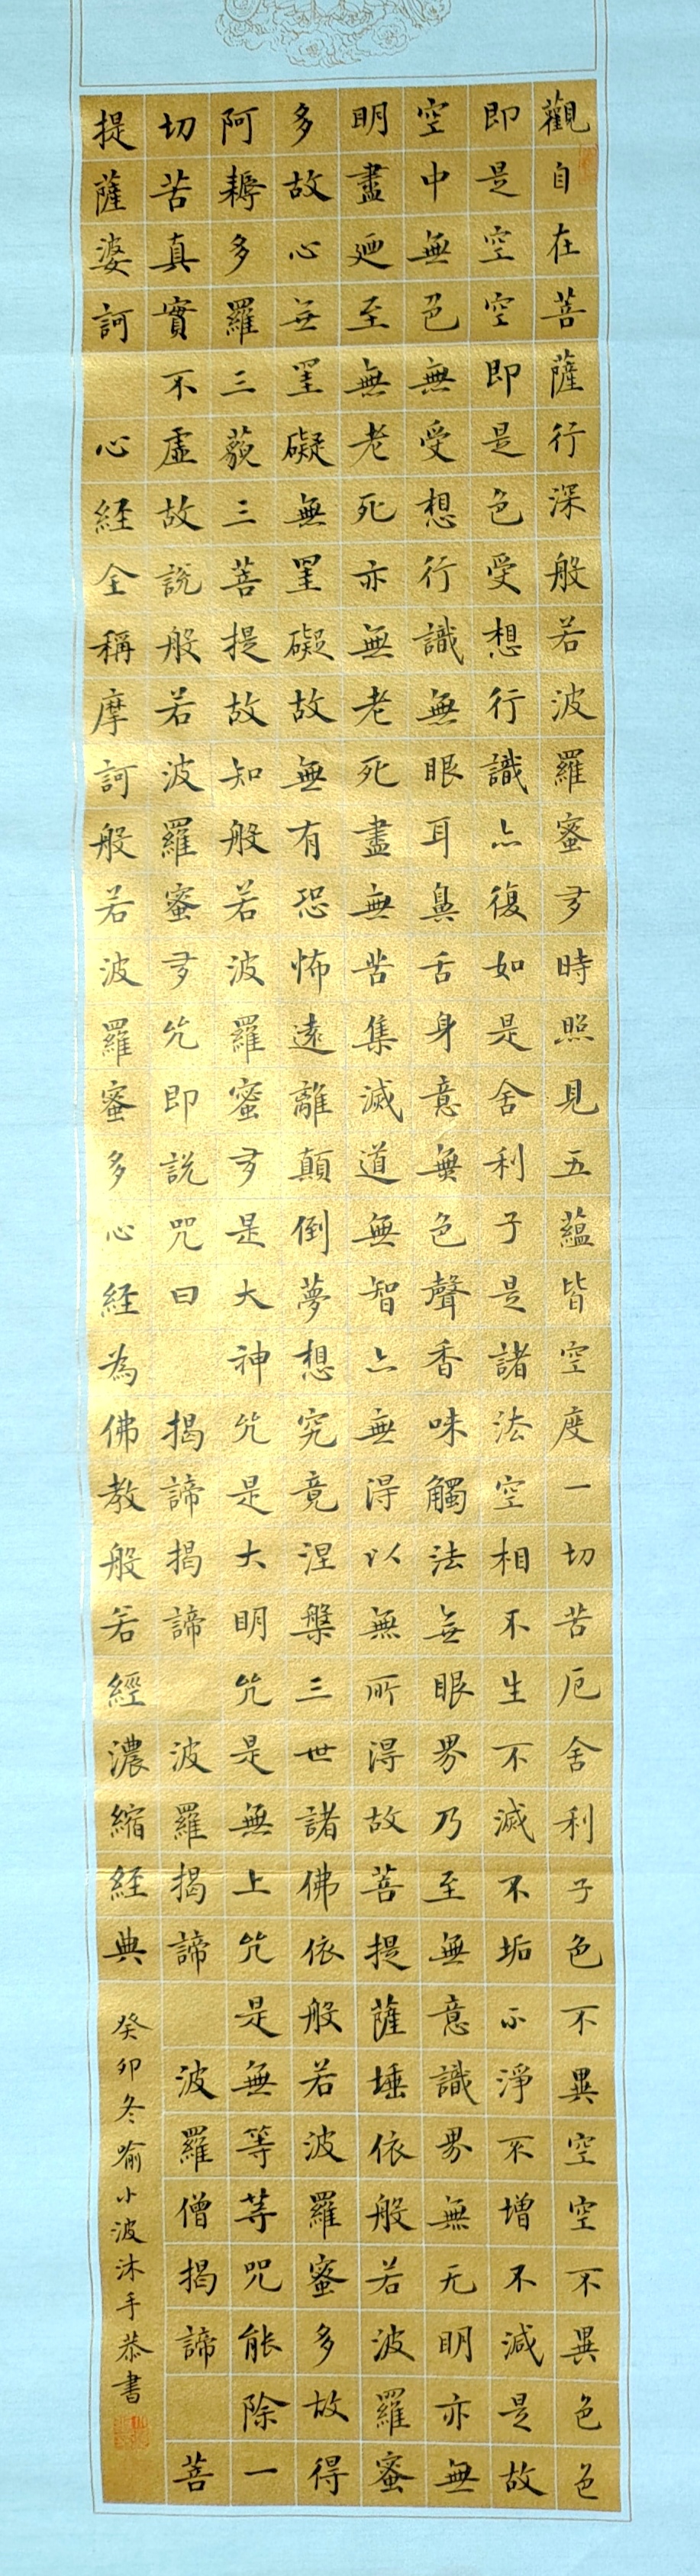 觀自在菩薩行深般若波羅蜜多時照見五蘊皆空度一切苦厄舍利子色不異空空不異色色
即是空空即是色受想行識亦復如是舍利子是諸法空相不生不滅不垢不淨不增不減是故
空中無色無受想行識無眼耳鼻舌身意無色聲香味觸法無眼界乃至無意識界無无明亦無
明盡迺至無老死亦無老死盡無苦集滅道無智亦無得以無所得故菩提薩埵依般若波羅蜜
多故心無罣礙無罣礙故無有恐怖遠離顛倒夢想究竟涅槃三世諸佛依般若波羅蜜多故得
阿耨多羅三藐三菩提故知般若波羅蜜多是大神咒是大明咒是無上咒是無等等咒能除一
切苦真實不虛故說般若波羅蜜多咒即說咒曰 揭諦揭諦 波羅揭諦 波羅僧揭諦 菩
提薩婆訶 心経全稱摩訶般若波羅蜜多心経為佛教般若經濃縮経典
癸卯冬喻小波沐手恭書